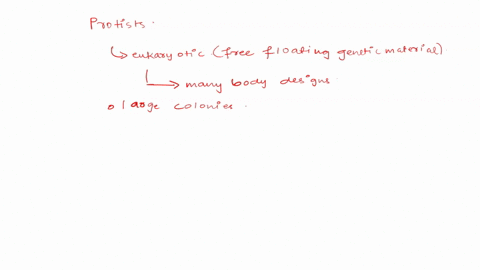 Protists.
↳ eukaryotic (free floating genetic material)
↳ many body designs.
o large colonies.